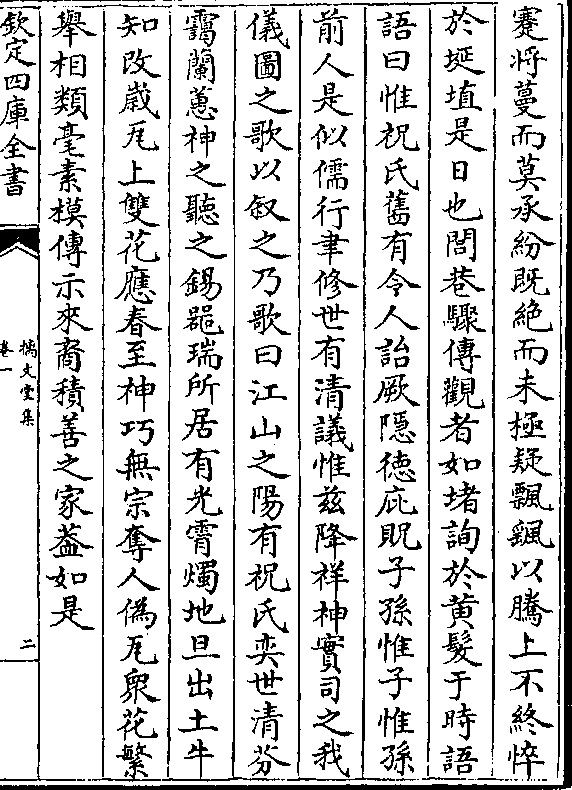 蹇將蔓而莫承紛既絶而未極疑飄颻以騰上不終悴
於埏埴是日也閭巷驟傳觀者如堵詢於黄髮于時語
語曰惟祝氏舊有令人詒厥隠徳庇貺子孫惟子惟孫
前人是似儒行聿修世有清議惟兹降祥神實司之我
儀圖之歌以叙之乃歌曰江山之陽有祝氏奕世清芬
靄蘭蕙神之聽之錫嘏瑞所居有光霄燭地旦出土牛
知改歳瓦上雙花應春至神巧無宗奪人偽瓦衆花繁
舉相類毫素模傳示來裔積善之家葢如是
欽定四庫全書
摛文堂集
卷一
二